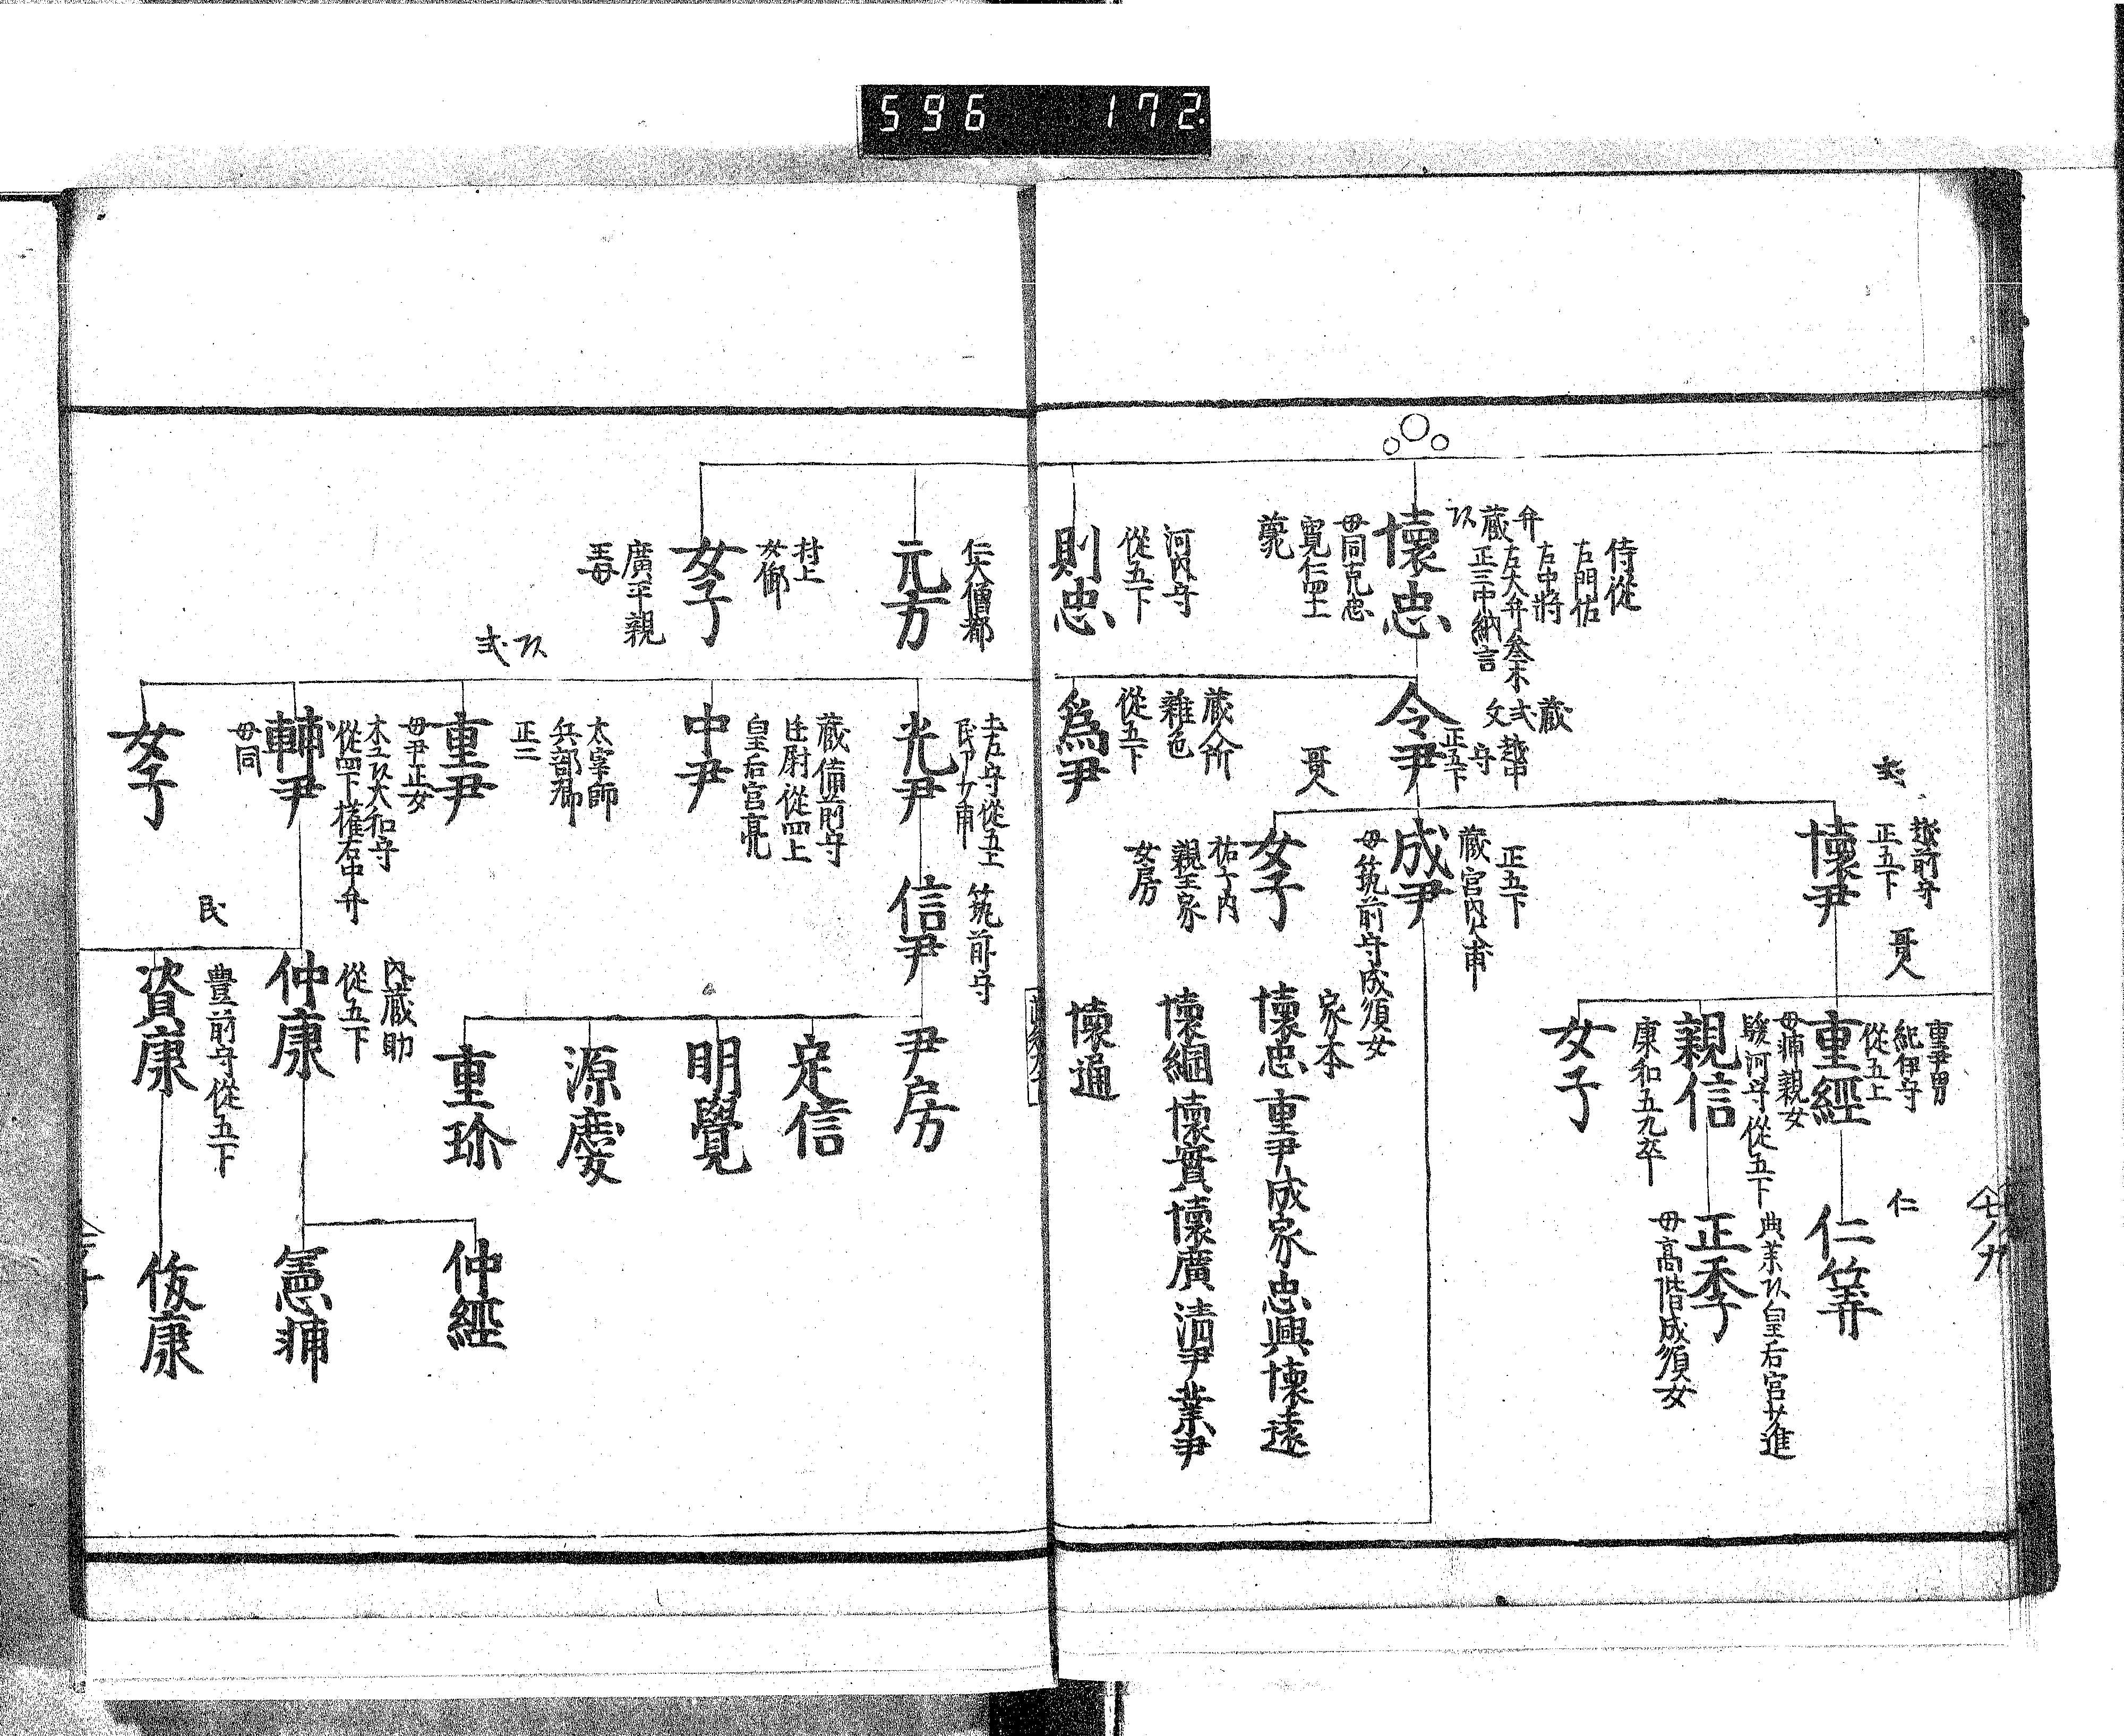 596 172
侍從
右門佐
右中將
左大弁参木
正三中納言
弁
蔵
懐忠
母同克忠
寛仁四十一
薨
河内守
從五下
則忠
蔵
式
文
越中
守
正五下
令尹
哥人
蔵人所
雜色
從五下
為尹
越前守
正五下
懐尹
哥人
正五下
蔵宮内少甫
成尹
母筑前守成須女
女子
祐子内
親王家
女房
重尹男
紀伊守
從五上
重經
母輔親女
駿河守從五下
親信
康和五九卒
女子
仁
仁筭
典薬
皇后宮少進
正季
母高階成須女
家本
懐忠 重尹 成家 忠興 懐遠
懐綱 懐實 懐廣 清尹 業尹
懐通
仁大僧都
元方
村上
女御
女子
廣平親
王母
式
土左守從五上
光尹
蔵備前守
從四上
皇后宮亮
中尹
太宰師
兵部卿
正二
重尹
母尹正女
大和守
從四下権右中弁
輔尹
母同
女子
筑前守
信尹
尹房
定信
明覺
源慶
重珎
民
内蔵助
從五下
仲康
豊前守從五下
資康
仲經
憲輔
俊康